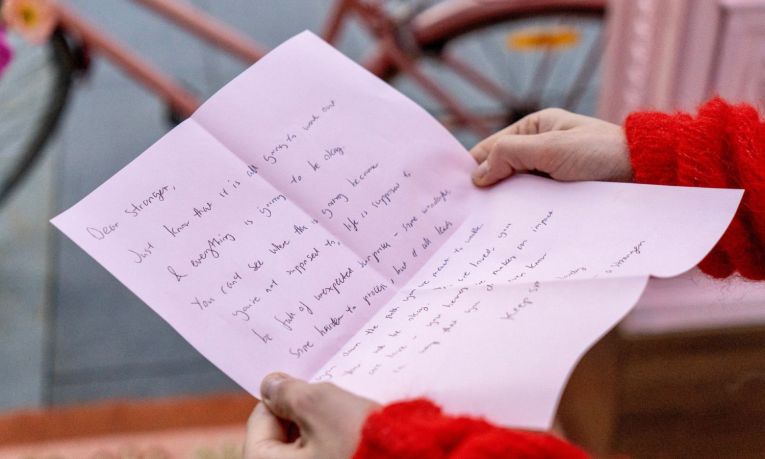 Dear Stranger,
Just know that it is all going to work out
& everything is going to be okay.
You can't see where this is going because
you're not supposed to, life is supposed to
be full of unexpected surprises - some
some harder to process, but it all leads
you down the path you're meant to walk.
You will be okay. You are loved, you
can have - you make an impact
in ways that you even know
Keep
a stranger